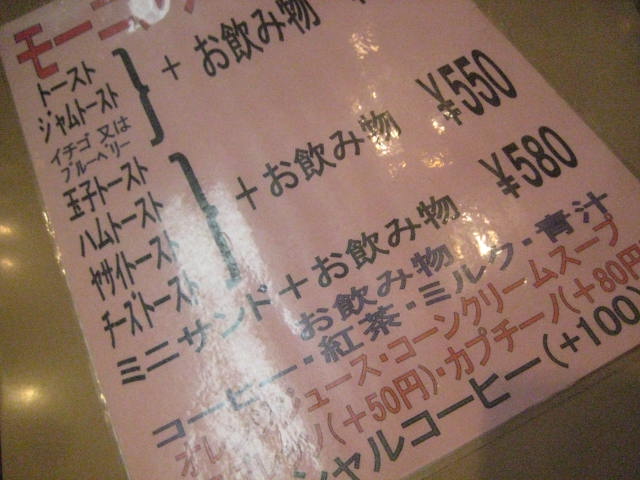 モーニング
トースト
ジャムトースト
イチゴ 又は
ブルーベリー
+ お飲み物
玉子トースト
ハムトースト
ヤサイトースト
チーズトースト
+ お飲み物 ¥550
ミニサンド+お飲み物 ¥580
お飲み物
コーヒー・紅茶・ミルク・青汁
ジュース・コーンクリームスープ
(+50円)・カプチーノ(+80円
シャルコーヒー(+100)